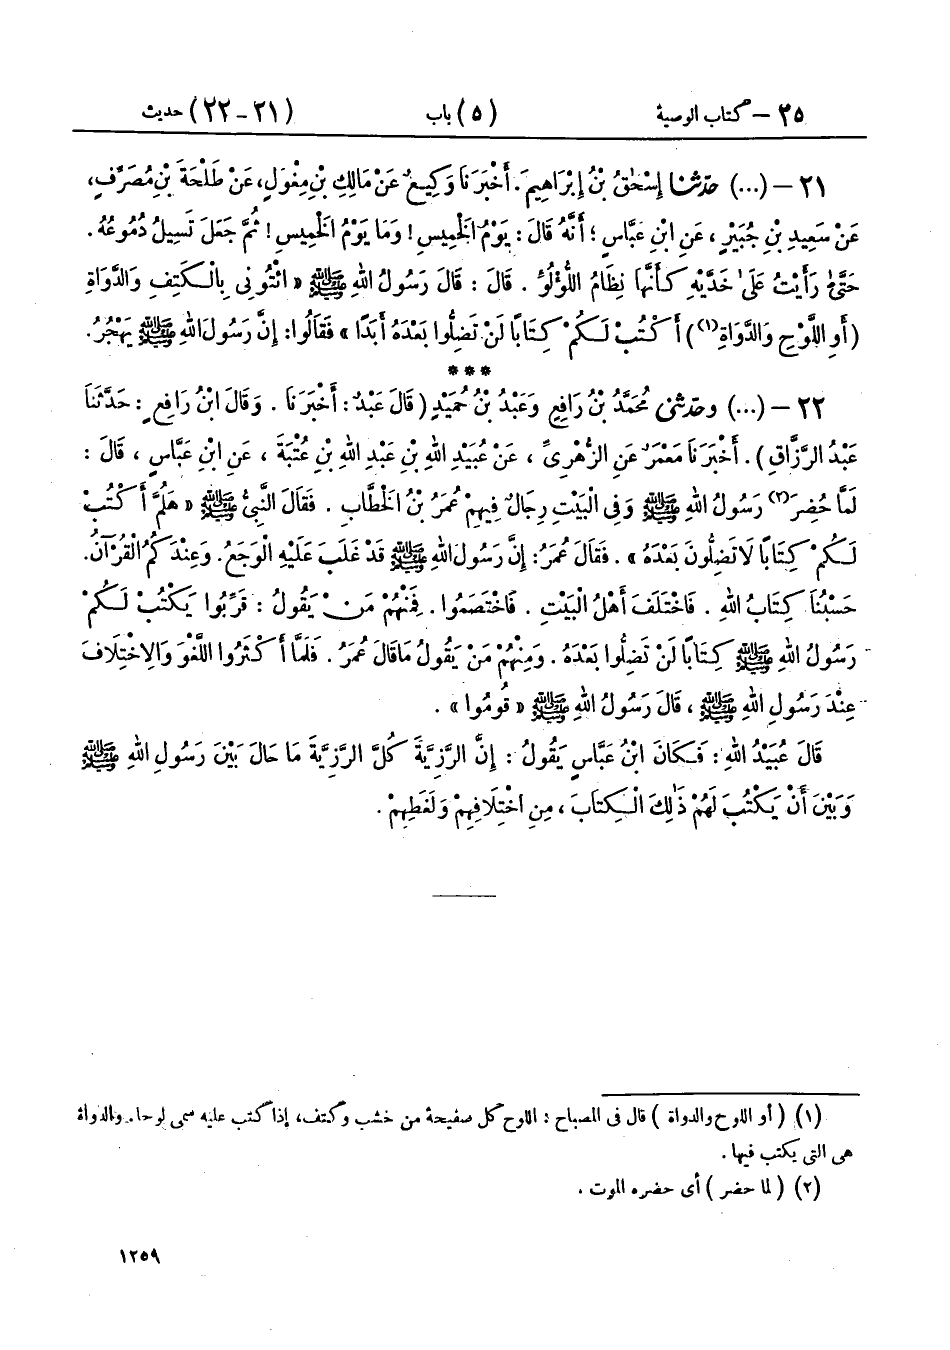 ٢٥ – كتاب الوصية (٥) باب (٢١-٢٢) حديث
٢١ – (...) حدثنا إِسْحٰقُ بْنُ إِبْرَاهِيمَ. أَخْبَرَنَا وَكِيعٌ عَنْ مَالِكِ بْنِ مِغْوَلٍ، عَنْ طَلْحَةَ بْنِ مُصَرِّفٍ،
عَنْ سَعِيدِ بْنِ جُبَيْرٍ، عَنِ ابْنِ عَبَّاسٍ؛ أَنَّهُ قَالَ: يَوْمُ الْخَمِيسِ! وَمَا يَوْمُ الْخَمِيسِ! ثُمَّ جَعَلَ تَسِيلُ دُمُوعُهُ.
حَتَّىٰ رَأَيْتُ عَلَىٰ خَدَّيْهِ كَأَنَّهَا نِظَامُ اللُّؤْلُؤِ. قَالَ: قَالَ رَسُولُ اللهِ ﷺ « ائْتُونِي بِالْكَتِفِ وَالدَّوَاةِ
(أَوِ اللَّوْحِ وَالدَّوَاةِ(١)) أَكْتُبْ لَكُمْ كِتَابًا لَنْ تَضِلُّوا بَعْدَهُ أَبَدًا » فَقَالُوا: إِنَّ رَسُولَ اللهِ ﷺ يَهْجُرُ.
***
٢٢ – (...) وحدثني مُحَمَّدُ بْنُ رَافِعٍ وَعَبْدُ بْنُ حُمَيْدٍ (قَالَ عَبْدٌ: أَخْبَرَنَا. وَقَالَ ابْنُ رَافِعٍ: حَدَّثَنَا
عَبْدُ الرَّزَّاقِ). أَخْبَرَنَا مَعْمَرٌ عَنِ الزُّهْرِيِّ، عَنْ عُبَيْدِ اللهِ بْنِ عَبْدِ اللهِ بْنِ عُتْبَةَ، عَنِ ابْنِ عَبَّاسٍ، قَالَ:
لَمَّا حُضِرَ(٢) رَسُولُ اللهِ ﷺ وَفِي الْبَيْتِ رِجَالٌ فِيهِمْ عُمَرُ بْنُ الْخَطَّابِ. فَقَالَ النَّبِيُّ ﷺ « هَلُمَّ أَكْتُبْ
لَكُمْ كِتَابًا لَا تَضِلُّونَ بَعْدَهُ ». فَقَالَ عُمَرُ: إِنَّ رَسُولَ اللهِ ﷺ قَدْ غَلَبَ عَلَيْهِ الْوَجَعُ. وَعِنْدَكُمُ الْقُرْآنُ.
حَسْبُنَا كِتَابُ اللهِ. فَاخْتَلَفَ أَهْلُ الْبَيْتِ. فَاخْتَصَمُوا. فَمِنْهُمْ مَنْ يَقُولُ: قَرِّبُوا يَكْتُبْ لَكُمْ
رَسُولُ اللهِ ﷺ كِتَابًا لَنْ تَضِلُّوا بَعْدَهُ. وَمِنْهُمْ مَنْ يَقُولُ مَا قَالَ عُمَرُ. فَلَمَّا أَكْثَرُوا اللَّغْوَ وَالِاخْتِلَافَ
عِنْدَ رَسُولِ اللهِ ﷺ، قَالَ رَسُولُ اللهِ ﷺ « قُومُوا ».
قَالَ عُبَيْدُ اللهِ: فَكَانَ ابْنُ عَبَّاسٍ يَقُولُ: إِنَّ الرَّزِيَّةَ كُلَّ الرَّزِيَّةِ مَا حَالَ بَيْنَ رَسُولِ اللهِ ﷺ
وَبَيْنَ أَنْ يَكْتُبَ لَهُمْ ذَٰلِكَ الْكِتَابَ، مِنِ اخْتِلَافِهِمْ وَلَغَطِهِمْ.
(١) (أو اللوح والدواة) قال في المصباح: اللوح كل صفيحة من خشب وكتف، إذا كتب عليه سمى لوحا. والدواة
هى التى يكتب فيها.
(٢) (لما حضر) أى حضره الموت.
١٢٥٩